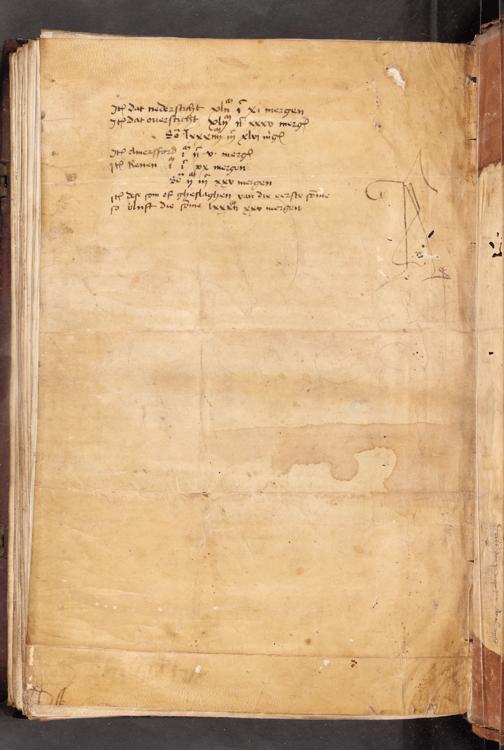 Itē dat nedersticht xlijᵐ iᶜ xi mergen
Itē dat ouersticht xlijᵐ iiᶜ xxxv mergē
Sōᵃ lxxxiiijᵐ iijᶜ xlvi mgē
Itē Amersford iᵐ iiᶜ v mergē
Itē Renen iᵐ iᶜ xx mergen
Sōᵃ ijᵐ iijᶜ xxv mergen
Itē des son of gheslaghen van die eerste sōme
so blijft die sōme lxxxijᵐ xxv mergen